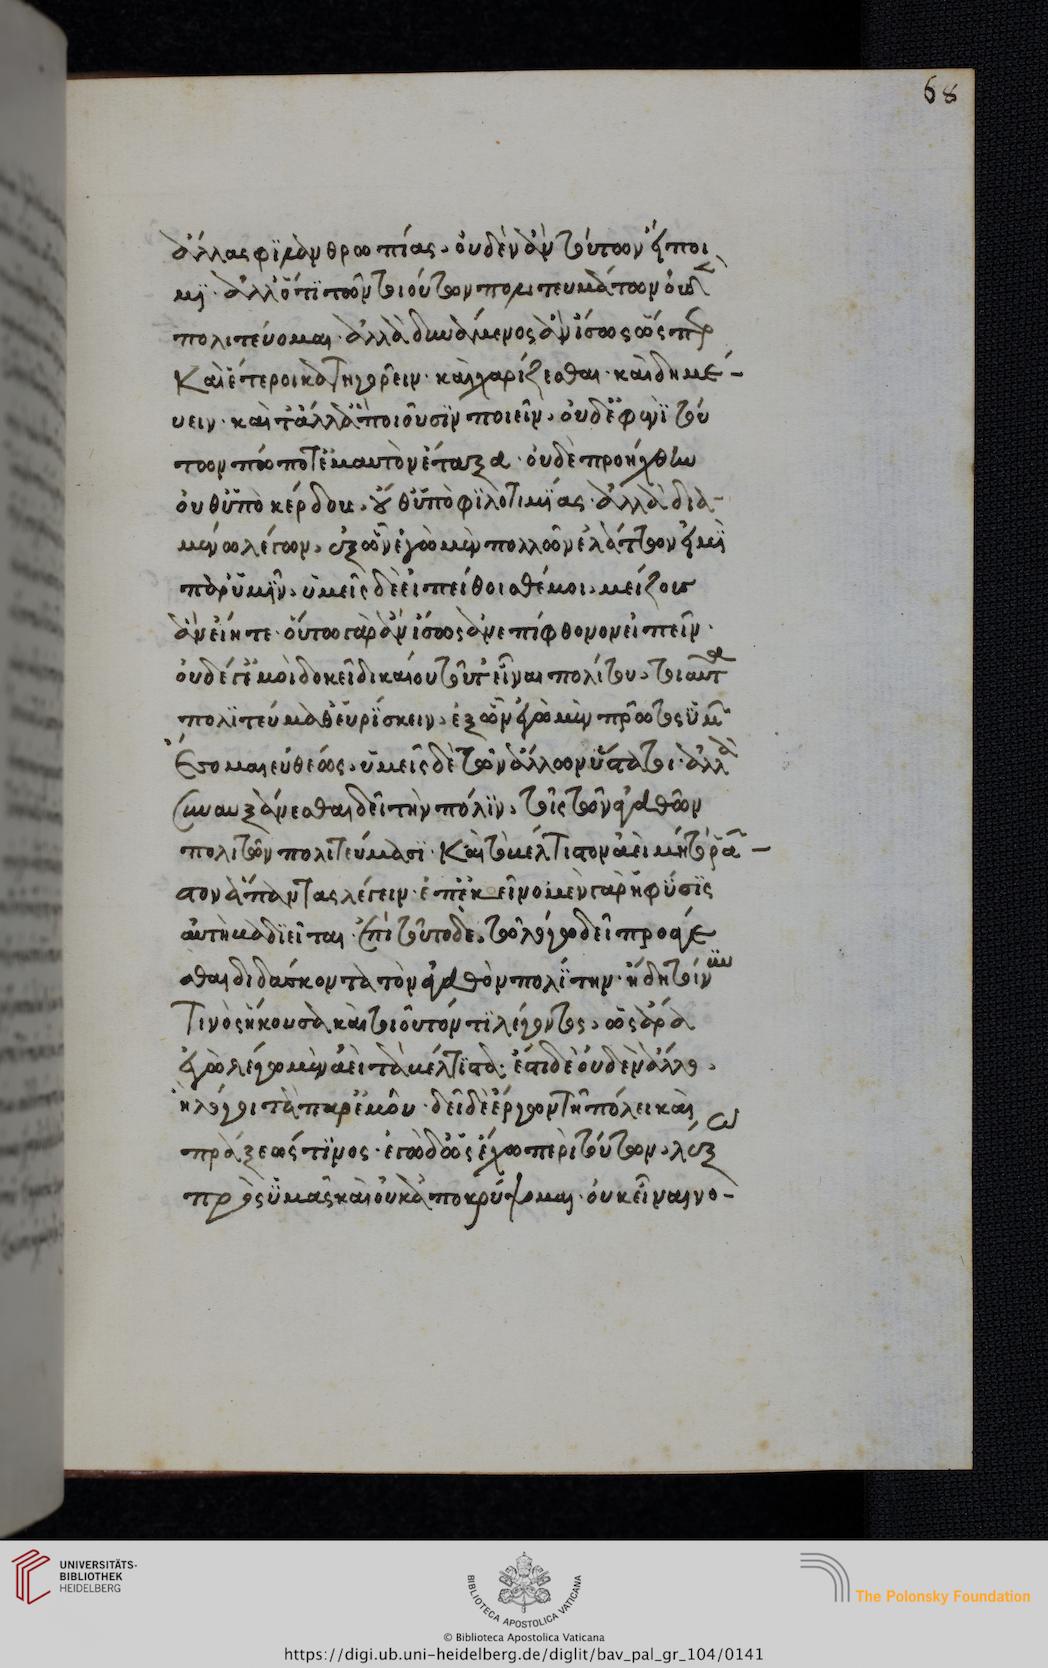 68
ἄλλας φιλανθρωπίας. οὐδὲν ἂν τούτων εἴποι
μι. ἀλλ' ὅτι τῶν τοιούτων πολιτευμάτων οὐδὲν
πολιτεύομαι. ἀλλὰ δυνάμενος ἂν ἴσως ὥσπερ
καὶ ἕτεροι κατηγορεῖν. καὶ χαρίζεσθαι. καὶ δημε-
ύειν. καὶ τἄλλα ἃ ποιοῦσιν ποιεῖν. οὐδ' ἐφ' ἑνὶ τού
των πώποτ' ἐμαυτὸν ἔταξα. οὐδὲ προήχθην
οὐθ' ὑπὸ κέρδους. οὔθ' ὑπὸ φιλοτιμίας. ἀλλὰ δια-
μένω λέγων. ἐξ ὧν ἐγὼ μὲν πολλῶν ἐλάττων εἰμὶ
παρ' ὑμῖν. ὑμεῖς δὲ εἰ πείθοισθέ μοι. μείζους
ἂν εἴητε. οὕτω γὰρ ἂν ἴσως ἀνεπίφθονον εἰπεῖν.
οὐδέ γ' ἐμοὶ δοκεῖ δικαίου τοῦτ' εἶναι πολίτου. τοιαῦτα
πολιτεύμαθ' εὑρίσκειν. ἐξ ὧν ἐγὼ μὲν πρῶτος ὑμῶν
ἔσομαι εὐθέως. ὑμεῖς δὲ τῶν ἄλλων ὕστατοι. ἀλλὰ
συναυξάνεσθαι δεῖ τὴν πόλιν. τοῖς τῶν ἀγαθῶν
πολιτῶν πολιτεύμασι. καὶ τὸ βέλτιστον ἀεὶ μὴ τὸ ῥᾷ-
στον ἅπαντας λέγειν. ἐπ' ἐκεῖνο μὲν γὰρ ἡ φύσις
αὐτὴ βαδιεῖται. ἐπὶ τοῦτο δὲ. τῷ λόγῳ δεῖ προάγε
σθαι διδάσκοντα τὸν ἀγαθὸν πολίτην. ἤδη τοίνυν
τινὸς ἤκουσα καὶ τοιοῦτόν τι λέγοντος. ὡς ἄρα
ἐγὼ λέγω μὲν ἀεὶ τὰ βέλτιστα. ἔστι δὲ οὐδὲν ἄλλο.
ἢ λόγοι τὰ παρ' ἐμοῦ. δεῖ δὲ ἔργων τῇ πόλει καὶ
πράξεώς τινος. ἐγὼ δ' ὡς ἔχω περὶ τούτων. λέξω
πρὸς ὑμᾶς καὶ οὐκ ἀποκρύψομαι. οὐκ εἶναι νο-
UNIVERSITÄTS-
BIBLIOTHEK
HEIDELBERG
BIBLIOTECA APOSTOLICA VATICANA
The Polonsky Foundation
© Biblioteca Apostolica Vaticana
https://digi.ub.uni-heidelberg.de/diglit/bav_pal_gr_104/0141